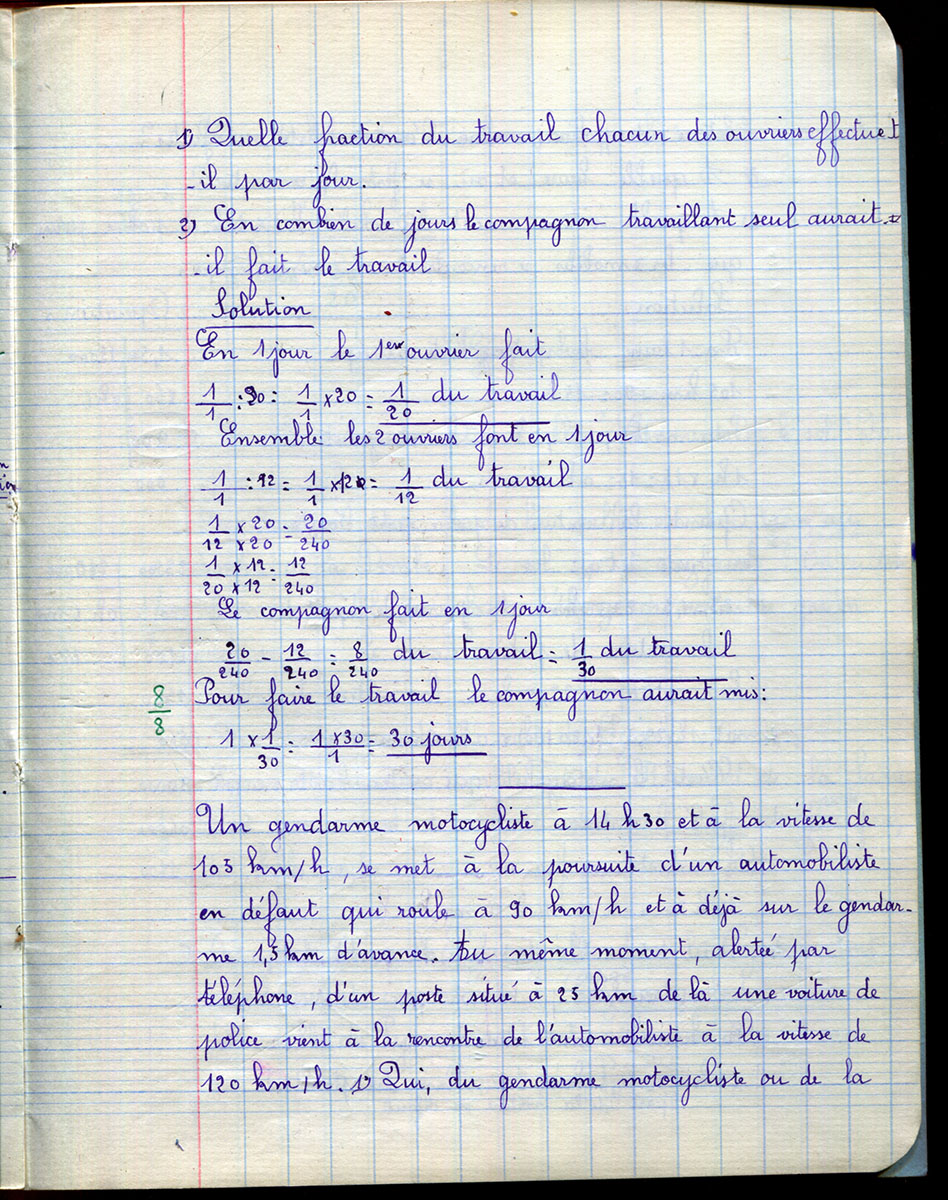 1) Quelle fraction du travail chacun des ouvriers effectue t
-il par jour.
2) En combien de jours le compagnon travaillant seul aurait-
-il fait le travail
Solution
En 1 jour le 1er ouvrier fait
1/1 : 20 = 1/1 × 20 = 1/20 du travail
Ensemble les 2 ouvriers font en 1 jour
1/1 : 12 = 1/1 × 12 = 1/12 du travail
1/12 × 20 × 20 = 20/240
1/20 × 12 × 12 = 12/240
Le compagnon fait en 1 jour
20/240 - 12/240 = 8/240 du travail = 1/30 du travail
8/8 Pour faire le travail le compagnon aurait mis :
1 × 1/30 = 1 × 30/1 = 30 jours
Un gendarme motocycliste à 14 h 30 et à la vitesse de
105 km/h, se met à la poursuite d'un automobiliste
en défaut qui roule à 90 km/h et à déjà sur le gendar-
me 1,5 km d'avance. Au même moment, alertée par
téléphone, d'un poste situé à 25 km de là une voiture de
police vient à la rencontre de l'automobiliste à la vitesse de
120 km/h. 1) Qui, du gendarme motocycliste ou de la